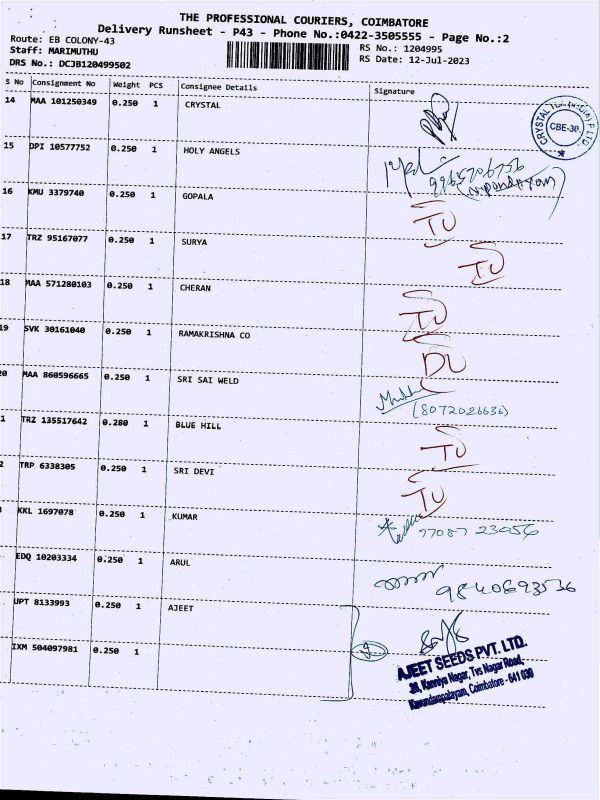 THE PROFESSIONAL COURIERS, COIMBATORE
Delivery Runsheet - P43 - Phone No.:0422-3505555 - Page No.:2
Route: EB COLONY-43
Staff: MARIMUTHU
DRS No.: DCJB120499502
RS No.: 1204995
RS Date: 12-Jul-2023
S No Consignment No Weight PCS Consignee Details Signature
14 MAA 101250349 0.250 1 CRYSTAL
CRYSTAL (INDIA) P LTD. CBE-30.
15 DPI 10577752 0.250 1 HOLY ANGELS
16 KMU 3379740 0.250 1 GOPALA TU
17 TRZ 95167077 0.250 1 SURYA TU
18 MAA 571280103 0.250 1 CHERAN TU
19 SVK 30161040 0.250 1 RAMAKRISHNA CO DU
20 MAA 860596665 0.250 1 SRI SAI WELD
(8072026636)
1 TRZ 135517642 0.280 1 BLUE HILL TU
2 TRP 6338305 0.250 1 SRI DEVI TU
3 KKL 1697078 0.250 1 KUMAR 77087 23056
EDQ 10203334 0.250 1 ARUL 9840693536
UPT 8133993 0.250 1 AJEET
IXM 504097981 0.250 1
AJEET SEEDS PVT. LTD.
Kanniya Nagar, Tvs Nagar Road,
Kavundampalayam, Coimbatore - 641 030